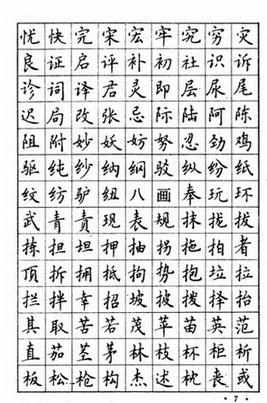 忧快完宋宏牢究穷灾
良证启评补初社识诉
诊词译君灵即层尿尾
迟局改张忌际陆阿陈
阻附妙妖妨努忍劲鸡
驱纯纱纳纲驳纵纷纸
纹纺驴纽八画奉玩环
武青责现表规抹拢拔
拣担坦押抽拐拖拍者
顶拆拥抵拘势抱垃拉
拦拌幸招坡披拨择抬
其取苦若茂苹苗英范
直茄茎茅林枝杯柜析
板松枪构杰述枕丧或
·7·